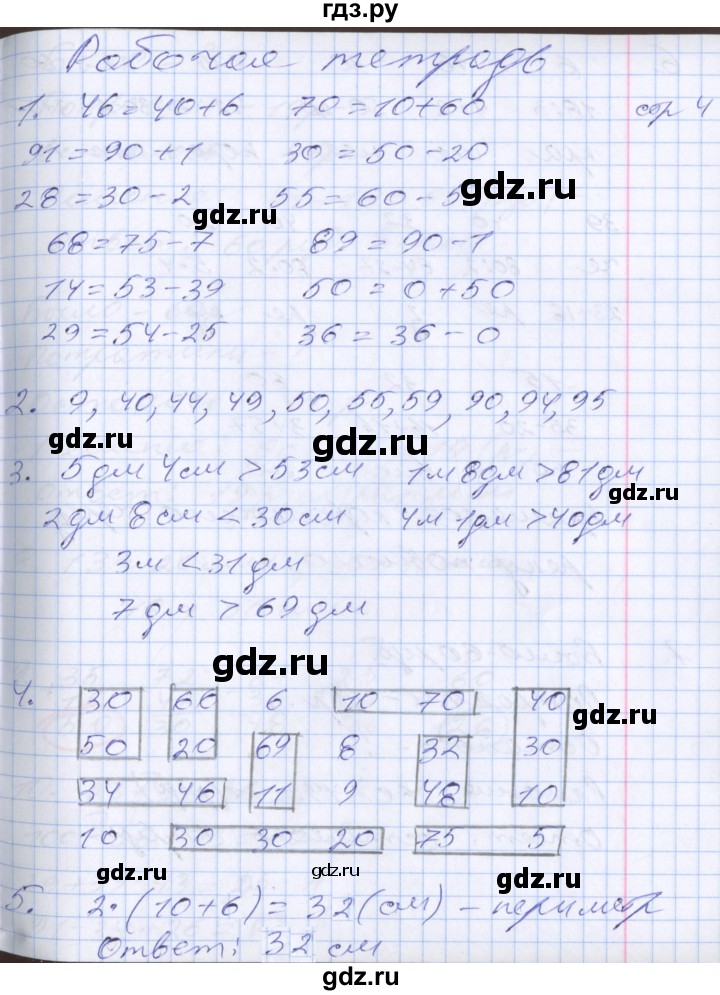 гдз.ру
Рабочая тетрадь
1. 46=40+6 70=10+60 стр 4
91=90+1 30=50-20
28=30-2 55=60-5
gdz.ru gdz.ru
68=75-7 89=90-1
14=53-39 50=0+50
gdz.ru
29=54-25 36=36-0
2. 9, 40, 44, 49, 50, 55, 59, 90, 94, 95
gdz.ru gdz.ru
3. 5дм 4см > 53см 1м 8дм > 81дм
gdz.ru
2дм 8см < 30см 4м 1дм > 40дм
3м < 31дм
7дм > 69дм
gdz.ru
4. 30 66 6 10 70 40
gdz.ru
50 20 69 8 32 30
34 46 11 9 48 10
10 30 30 20 75 5
gdz.ru gdz.ru gdz.ru
5. 2·(10+6)=32(см) - периметр
Ответ: 32 см
gdz.ru